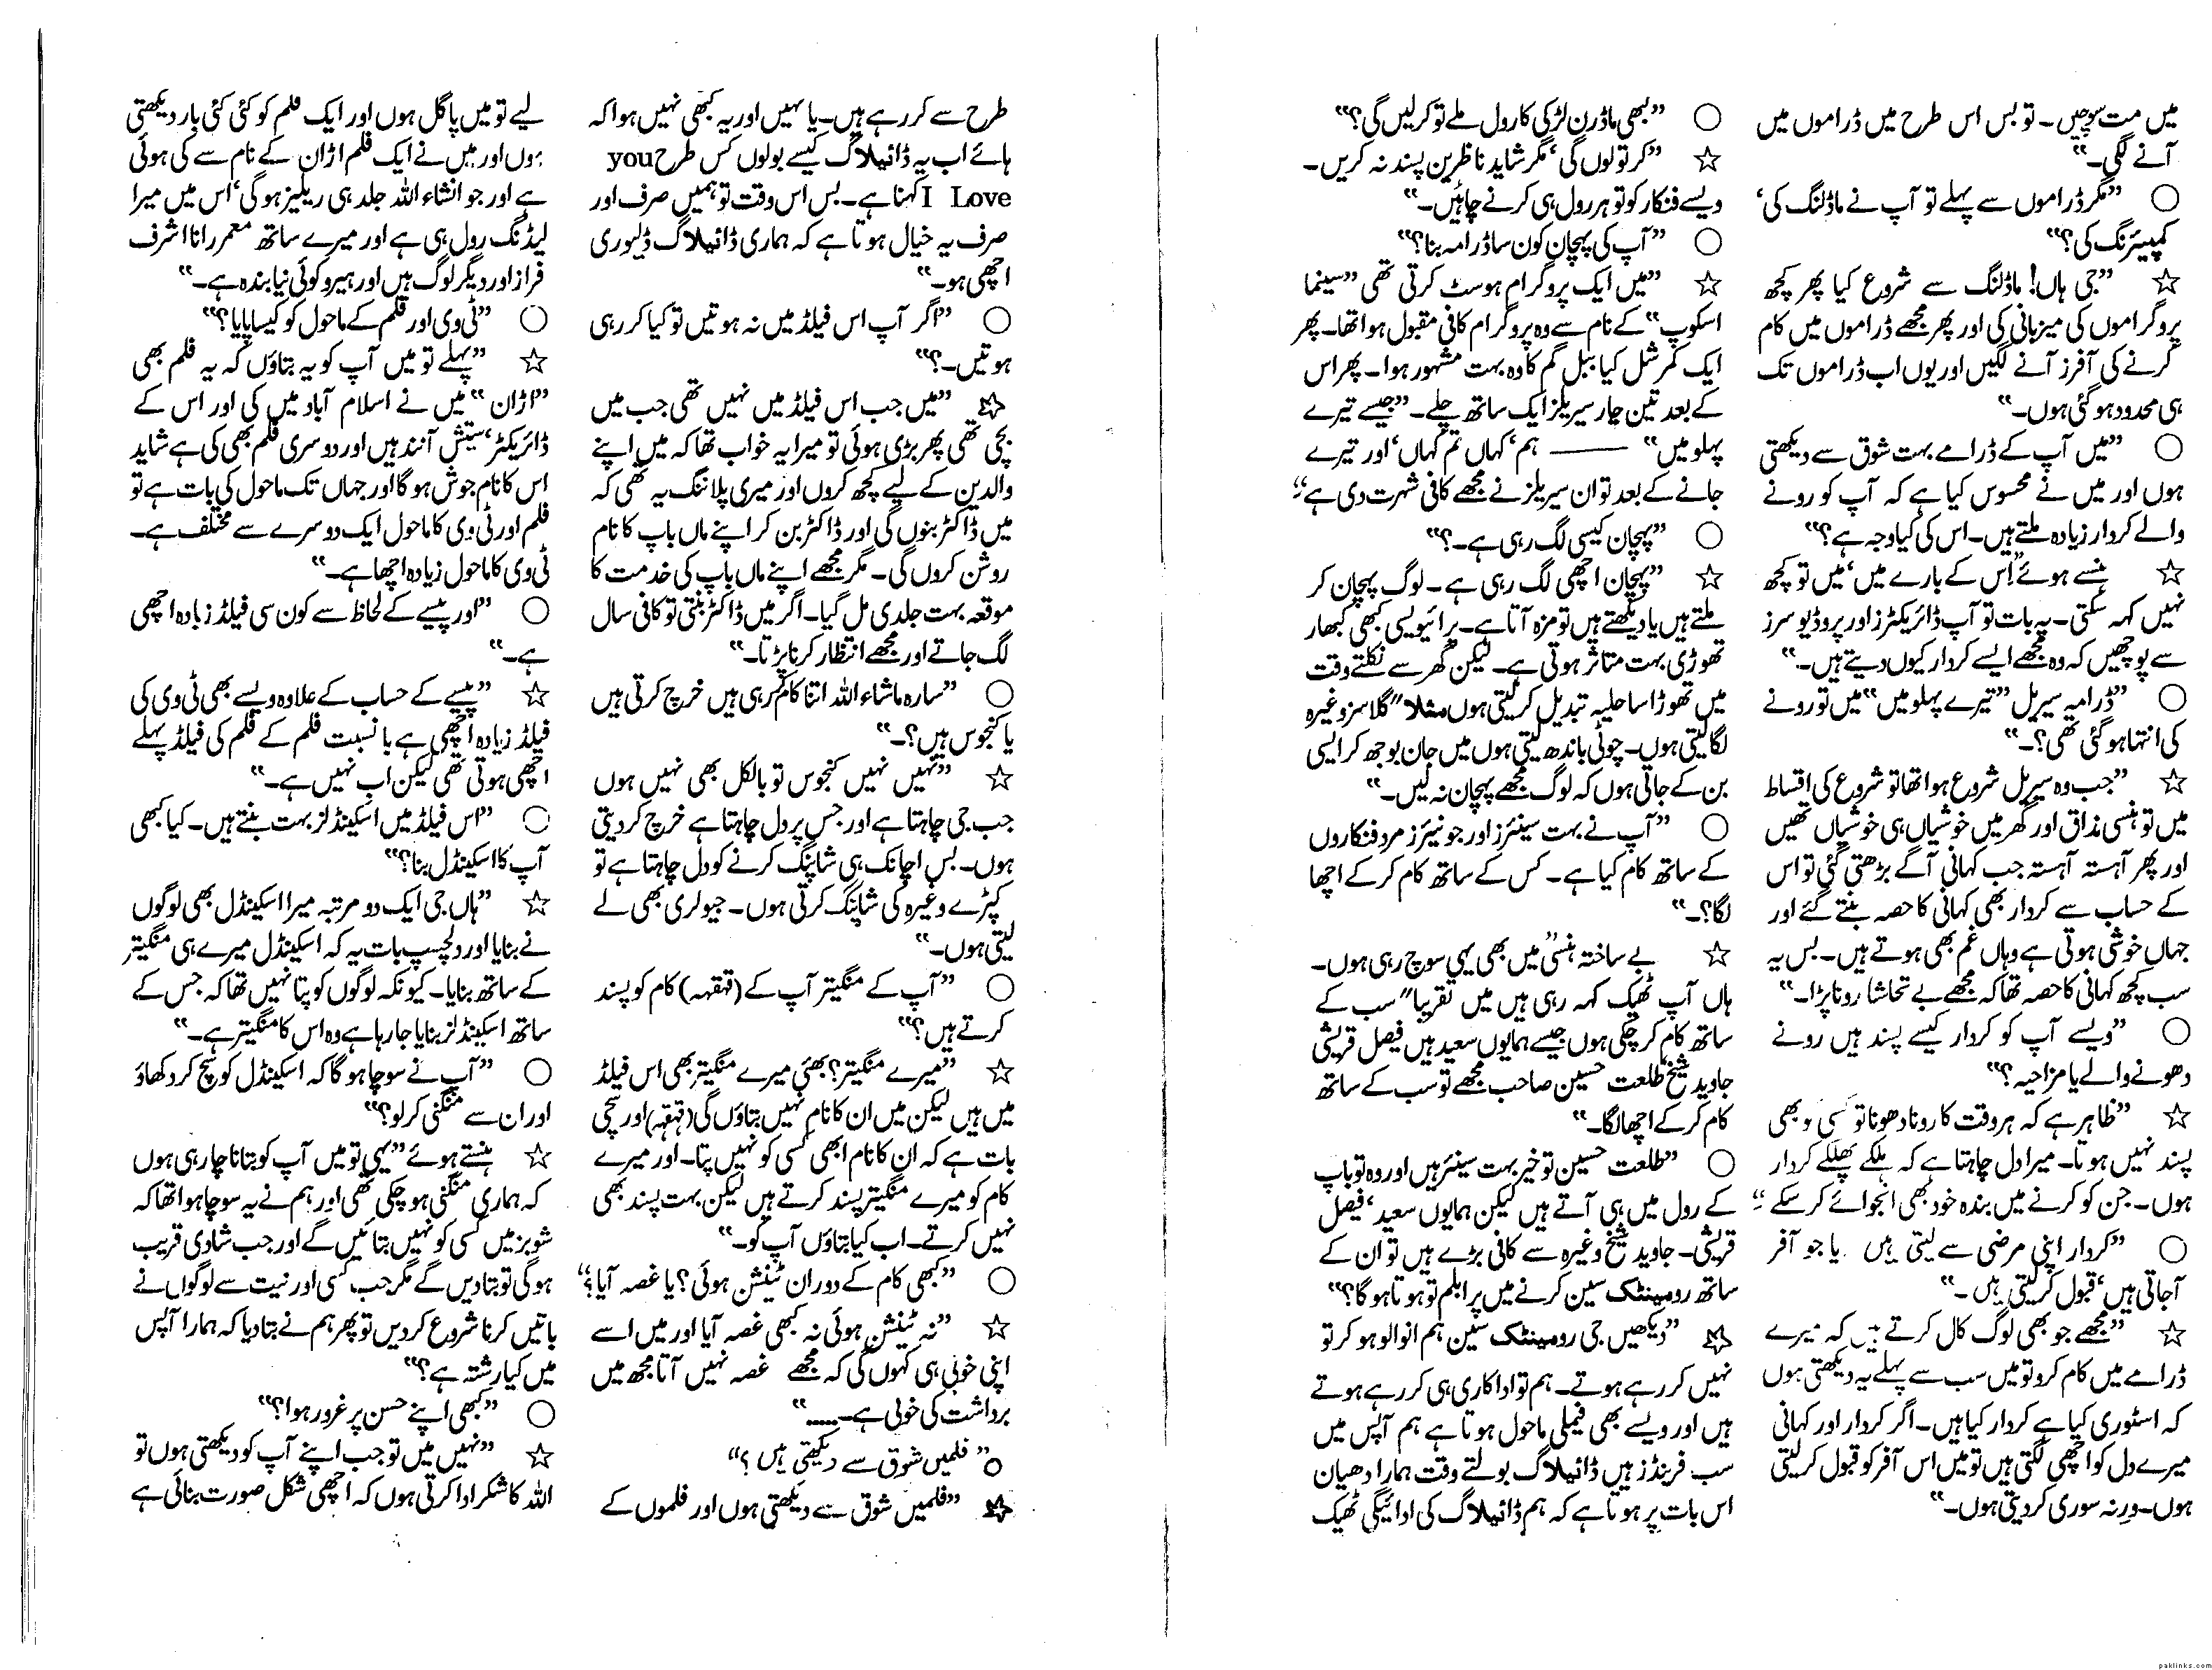 میں مت سوچیں۔ تو بس اس طرح میں ڈراموں میں
آنے لگی۔“
○ ”مگر ڈراموں سے پہلے تو آپ نے ماڈلنگ کی،
کمپیئرنگ کی؟“
☆ ”جی ہاں! ماڈلنگ سے شروع کیا پھر کچھ
پروگراموں کی میزبانی کی اور پھر مجھے ڈراموں میں کام
کرنے کی آفرز آنے لگیں اور یوں اب ڈراموں تک
ہی محدود ہو گئی ہوں۔“
○ ”میں آپ کے ڈرامے بہت شوق سے دیکھتی
ہوں اور میں نے محسوس کیا ہے کہ آپ کو رونے
والے کردار زیادہ ملتے ہیں۔ اس کی کیا وجہ ہے؟“
☆ ہنستے ہوئے ”اس کے بارے میں، میں تو کچھ
نہیں کہہ سکتی۔ یہ بات تو آپ ڈائریکٹرز اور پروڈیوسرز
سے پوچھیں کہ وہ مجھے ایسے کردار کیوں دیتے ہیں۔“
○ ”ڈرامہ سیریل ”تیرے پہلو میں“ میں تو رونے
کی انتہا ہو گئی تھی؟۔“
☆ ”جب وہ سیریل شروع ہوا تھا تو شروع کی اقساط
میں تو ہنسی مذاق اور گھر میں خوشیاں ہی خوشیاں تھیں
اور پھر آہستہ آہستہ جب کہانی آگے بڑھتی گئی تو اس
کے حساب سے کردار بھی کہانی کا حصہ بنتے گئے اور
جہاں خوشی ہوتی ہے وہاں غم بھی ہوتے ہیں۔ بس یہ
سب کچھ کہانی کا حصہ تھا کہ مجھے بے تحاشا رونا پڑا۔“
○ ”ویسے آپ کو کردار کیسے پسند ہیں رونے
دھونے والے یا مزاحیہ؟“
☆ ”ظاہر ہے کہ ہر وقت کا رونا دھونا تو کسی کو بھی
پسند نہیں ہوتا۔ میرا دل چاہتا ہے کہ ہلکے پھلکے کردار
ہوں۔ جن کو کرنے میں بندہ خود بھی انجوائے کر سکے۔“
○ ”کردار اپنی مرضی سے لیتی ہیں یا جو آفر
آجاتی ہیں، قبول کر لیتی ہیں۔“
☆ ”مجھے جو بھی لوگ کال کرتے ہیں کہ میرے
ڈرامے میں کام کرو تو میں سب سے پہلے یہ دیکھتی ہوں
کہ اسٹوری کیا ہے کردار کیا ہیں۔ اگر کردار اور کہانی
میرے دل کو اچھی لگتی ہیں تو میں اس آفر کو قبول کر لیتی
ہوں۔ ورنہ سوری کر دیتی ہوں۔“
○ ”بھی ماڈرن لڑکی کا رول ملے تو کر لیں گی؟“
☆ ”کر تو لوں گی، مگر شاید ناظرین پسند نہ کریں۔
ویسے فنکار کو تو ہر رول ہی کرنے چاہئیں۔“
○ ”آپ کی پہچان کون سا ڈرامہ بنا؟“
☆ ”میں ایک پروگرام ہوسٹ کرتی تھی ”سینما
اسکوپ“ کے نام سے وہ پروگرام کافی مقبول ہوا تھا۔ پھر
ایک کمرشل کیا ببل گم کا وہ بہت مشہور ہوا۔ پھر اس
کے بعد تین چار سیریلز ایک ساتھ چلے۔ ”جیسے تیرے
پہلو میں“ —— ہم، کہاں تم کہاں، اور تیرے
جانے کے بعد تو ان سیریلز نے مجھے کافی شہرت دی ہے۔“
○ ”پہچان کیسی لگ رہی ہے۔؟“
☆ ”پہچان اچھی لگ رہی ہے۔ لوگ پہچان کر
ملتے ہیں یا دیکھتے ہیں تو مزہ آتا ہے۔ پرائیویسی کبھی کبھار
تھوڑی بہت متاثر ہوتی ہے۔ لیکن گھر سے نکلتے وقت
میں تھوڑا سا حلیہ تبدیل کر لیتی ہوں مثلا“ گلاسز وغیرہ
لگا لیتی ہوں۔ چوٹی باندھ لیتی ہوں میں جان بوجھ کر ایسی
بن کے جاتی ہوں کہ لوگ مجھے پہچان نہ لیں۔“
○ ”آپ نے بہت سینئرز اور جونیئرز مرد فنکاروں
کے ساتھ کام کیا ہے۔ کس کے ساتھ کام کر کے اچھا
لگا؟۔“
☆ بے ساختہ ہنسی ”میں بھی یہی سوچ رہی ہوں۔
ہاں آپ ٹھیک کہہ رہی ہیں میں تقریبا“ سب کے
ساتھ کام کر چکی ہوں جیسے ہمایوں سعید ہیں فیصل قریشی
جاوید شیخ طلعت حسین صاحب مجھے تو سب کے ساتھ
کام کر کے اچھا لگا۔“
○ ”طلعت حسین تو خیر بہت سینئر ہیں اور وہ تو باپ
کے رول میں ہی آتے ہیں لیکن ہمایوں سعید، فیصل
قریشی۔ جاوید شیخ وغیرہ سے کافی بڑے ہیں تو ان کے
ساتھ رومینٹک سین کرنے میں پرابلم تو ہوتا ہو گا؟“
☆ ”دیکھیں جی رومینٹک سین ہم انوالو ہو کر تو
نہیں کر رہے ہوتے۔ ہم تو اداکاری ہی کر رہے ہوتے
ہیں اور ویسے بھی فیملی ماحول ہوتا ہے ہم آپس میں
سب فرینڈز ہیں ڈائیلاگ بولتے وقت ہمارا دھیان
اس بات پر ہوتا ہے کہ ہم ڈائیلاگ کی ادائیگی ٹھیک
طرح سے کر رہے ہیں۔ یا نہیں اور یہ کبھی نہیں ہوا کہ
ہائے اب یہ ڈائیلاگ کیسے بولوں کس طرح you
I Love کہنا ہے۔ بس اس وقت تو ہمیں صرف اور
صرف یہ خیال ہوتا ہے کہ ہماری ڈائیلاگ ڈلیوری
اچھی ہو۔“
○ ”اگر آپ اس فیلڈ میں نہ ہوتیں تو کیا کر رہی
ہوتیں۔؟“
☆ ”میں جب اس فیلڈ میں نہیں تھی جب میں
بچی تھی پھر بڑی ہوئی تو میرا یہ خواب تھا کہ میں اپنے
والدین کے لیے کچھ کروں اور میری پلاننگ یہ تھی کہ
میں ڈاکٹر بنوں گی اور ڈاکٹر بن کر اپنے ماں باپ کا نام
روشن کروں گی۔ مگر مجھے اپنے ماں باپ کی خدمت کا
موقعہ بہت جلدی مل گیا۔ اگر میں ڈاکٹر بنتی تو کافی سال
لگ جاتے اور مجھے انتظار کرنا پڑتا۔“
○ ”سارہ ماشاء اللہ اتنا کام کر رہی ہیں خرچ کرتی ہیں
یا کنجوس ہیں؟۔“
☆ ”نہیں نہیں کنجوس تو بالکل بھی نہیں ہوں
جب جی چاہتا ہے اور جس پر دل چاہتا ہے خرچ کر دیتی
ہوں۔ بس اچانک ہی شاپنگ کرنے کو دل چاہتا ہے تو
کپڑے وغیرہ کی شاپنگ کرتی ہوں۔ جیولری بھی لے
لیتی ہوں۔“
○ ”آپ کے منگیتر آپ کے (قہقہہ) کام کو پسند
کرتے ہیں؟“
☆ ”میرے منگیتر؟ بھئی میرے منگیتر بھی اس فیلڈ
میں ہیں لیکن میں ان کا نام نہیں بتاؤں گی (قہقہہ) اور سچی
بات ہے کہ ان کا نام ابھی کسی کو نہیں پتا۔ اور میرے
کام کو میرے منگیتر پسند کرتے ہیں لیکن بہت پسند بھی
نہیں کرتے۔ اب کیا بتاؤں آپ کو۔“
○ ”کبھی کام کے دوران ٹینشن ہوئی؟ یا غصہ آیا؟“
☆ ”نہ ٹینشن ہوئی نہ کبھی غصہ آیا اور میں اسے
اپنی خوبی ہی کہوں گی کہ مجھے غصہ نہیں آتا مجھ میں
برداشت کی خوبی ہے۔.....“
○ ”فلمیں شوق سے دیکھتی ہیں؟“
☆ ”فلمیں شوق سے دیکھتی ہوں اور فلموں کے
لیے تو میں پاگل ہوں اور ایک فلم کو کئی کئی بار دیکھتی
ہوں اور میں نے ایک فلم اڑان کے نام سے کی ہوئی
ہے اور جو انشاء اللہ جلد ہی ریلیز ہو گی، اس میں میرا
لیڈنگ رول ہی ہے اور میرے ساتھ معمر رانا اشرف
فراز اور دیگر لوگ ہیں اور ہیرو کوئی نیا بندہ ہے۔“
○ ”ٹی وی اور فلم کے ماحول کو کیسا پایا؟“
☆ ”پہلے تو میں آپ کو یہ بتاؤں کہ یہ فلم بھی
”اڑان“ میں نے اسلام آباد میں کی اور اس کے
ڈائریکٹر، ستیش آنند ہیں اور دوسری فلم بھی کی ہے شاید
اس کا نام جوش ہو گا اور جہاں تک ماحول کی بات ہے تو
فلم اور ٹی وی کا ماحول ایک دوسرے سے مختلف ہے۔
ٹی وی کا ماحول زیادہ اچھا ہے۔“
○ ”اور پیسے کے لحاظ سے کون سی فیلڈ زیادہ اچھی
ہے۔“
☆ ”پیسے کے حساب کے علاوہ ویسے بھی ٹی وی کی
فیلڈ زیادہ اچھی ہے با نسبت فلم کے فلم کی فیلڈ پہلے
اچھی ہوتی تھی لیکن اب نہیں ہے۔“
○ ”اس فیلڈ میں اسکینڈلز بہت بنتے ہیں۔ کیا کبھی
آپ کا اسکینڈل بنا؟“
☆ ”ہاں جی ایک دو مرتبہ میرا اسکینڈل بھی لوگوں
نے بنایا اور دلچسپ بات یہ کہ اسکینڈل میرے ہی منگیتر
کے ساتھ بنایا۔ کیونکہ لوگوں کو پتا نہیں تھا کہ جس کے
ساتھ اسکینڈلز بنایا جا رہا ہے وہ اس کا منگیتر ہے۔“
○ ”آپ نے سوچا ہو گا کہ اسکینڈل کو سچ کر دکھاؤ
اور ان سے منگنی کر لو؟“
☆ ہنستے ہوئے ”یہی تو میں آپ کو بتانا چاہ رہی ہوں
کہ ہماری منگنی ہو چکی تھی اور ہم نے یہ سوچا ہوا تھا کہ
شوبز میں کسی کو نہیں بتائیں گے اور جب شادی قریب
ہو گی تو بتا دیں گے مگر جب کسی اور نیت سے لوگوں نے
باتیں کرنا شروع کر دیں تو پھر ہم نے بتا دیا کہ ہمارا آپس
میں کیا رشتہ ہے؟“
○ ”کبھی اپنے حسن پر غرور ہوا؟“
☆ ”نہیں میں تو جب اپنے آپ کو دیکھتی ہوں تو
اللہ کا شکر ادا کرتی ہوں کہ اچھی شکل صورت بنائی ہے
paklinks.com